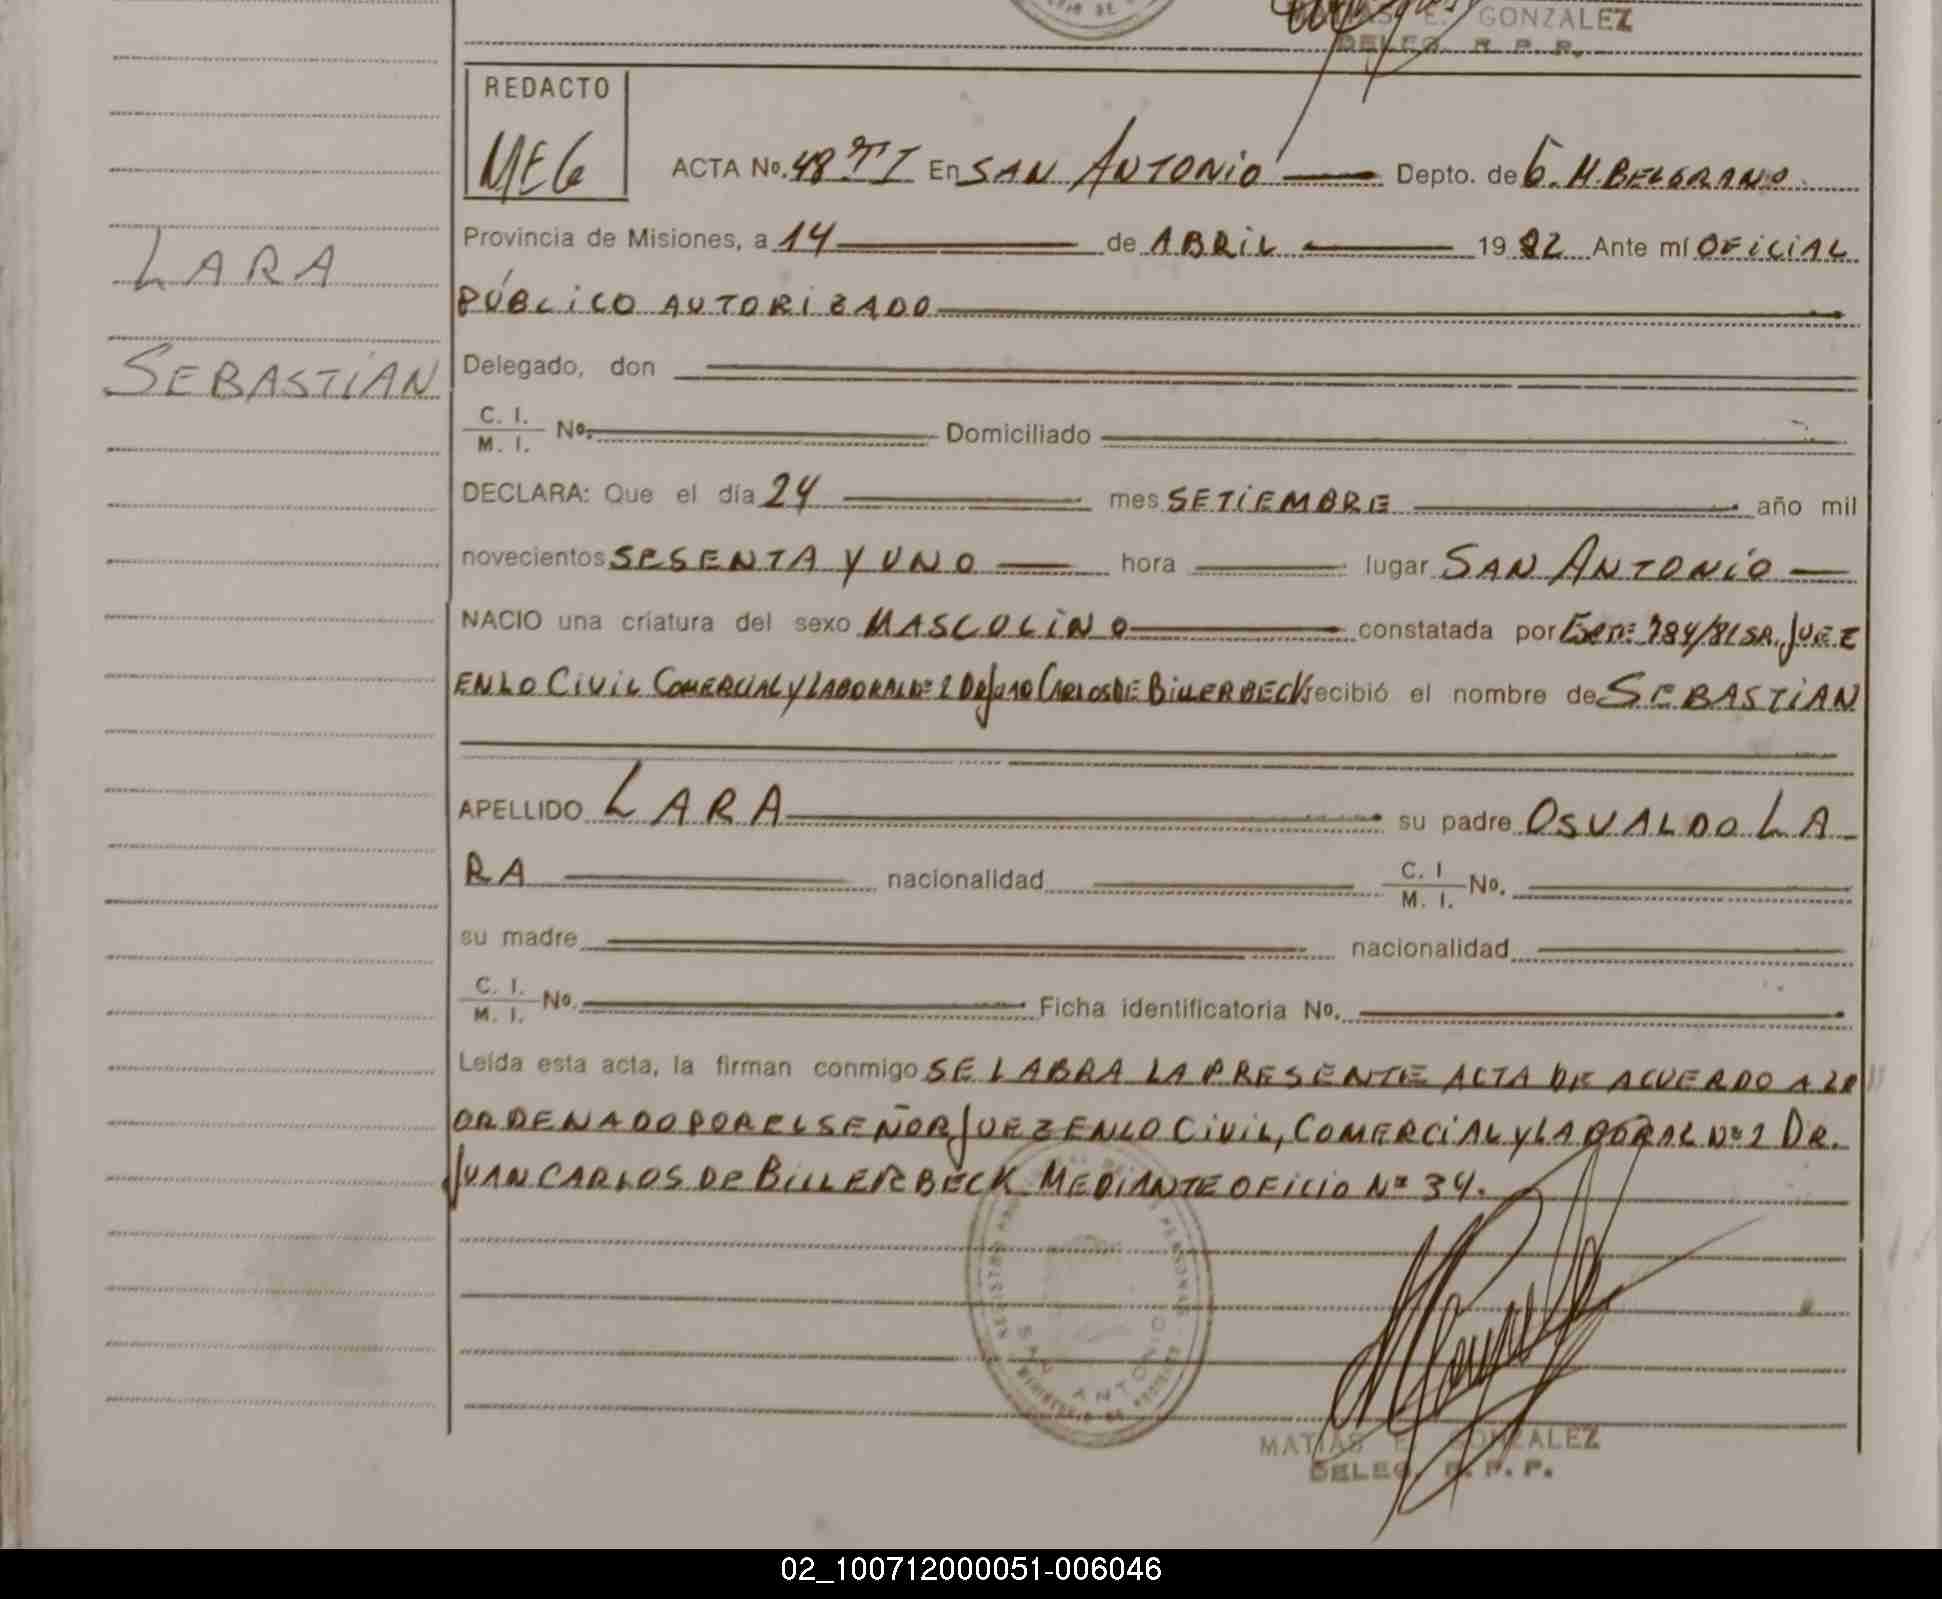 GONZALEZ
DELEG. R. P. P.
REDACTO
MEG
ACTA No. 48 TI En SAN ANTONIO Depto. de G. M. BELGRANO
Provincia de Misiones, a 14 de ABRIL 1982 Ante mí OFICIAL
LARA
PÚBLICO AUTORIZADO
SEBASTIAN
Delegado, don
C. I.
M. I. No. Domiciliado
DECLARA: Que el día 24 mes SETIEMBRE año mil
novecientos SESENTA Y UNO hora lugar SAN ANTONIO
NACIO una criatura del sexo MASCULINO constatada por EXPTE: 784/81 SR. JUEZ
EN LO CIVIL COMERCIAL Y LABORAL Nº 2 DR JUAN CARLOS DE BILLERBECK recibió el nombre de SEBASTIAN
APELLIDO LARA su padre OSVALDO LA
RA nacionalidad C. I
M. I. No.
su madre nacionalidad
C. I.
M. I. No. Ficha identificatoria No.
Leída esta acta, la firman conmigo SE LABRA LA PRESENTE ACTA DE ACUERDO A LO
ORDENADO POR EL SEÑOR JUEZ EN LO CIVIL, COMERCIAL Y LABORAL Nº 2 DR.
JUAN CARLOS DE BILLERBECK MEDIANTE OFICIO Nº 34.
SAN ANTONIO
MATIAS E. GONZALEZ
DELEG. R. P. P.
02_100712000051-006046